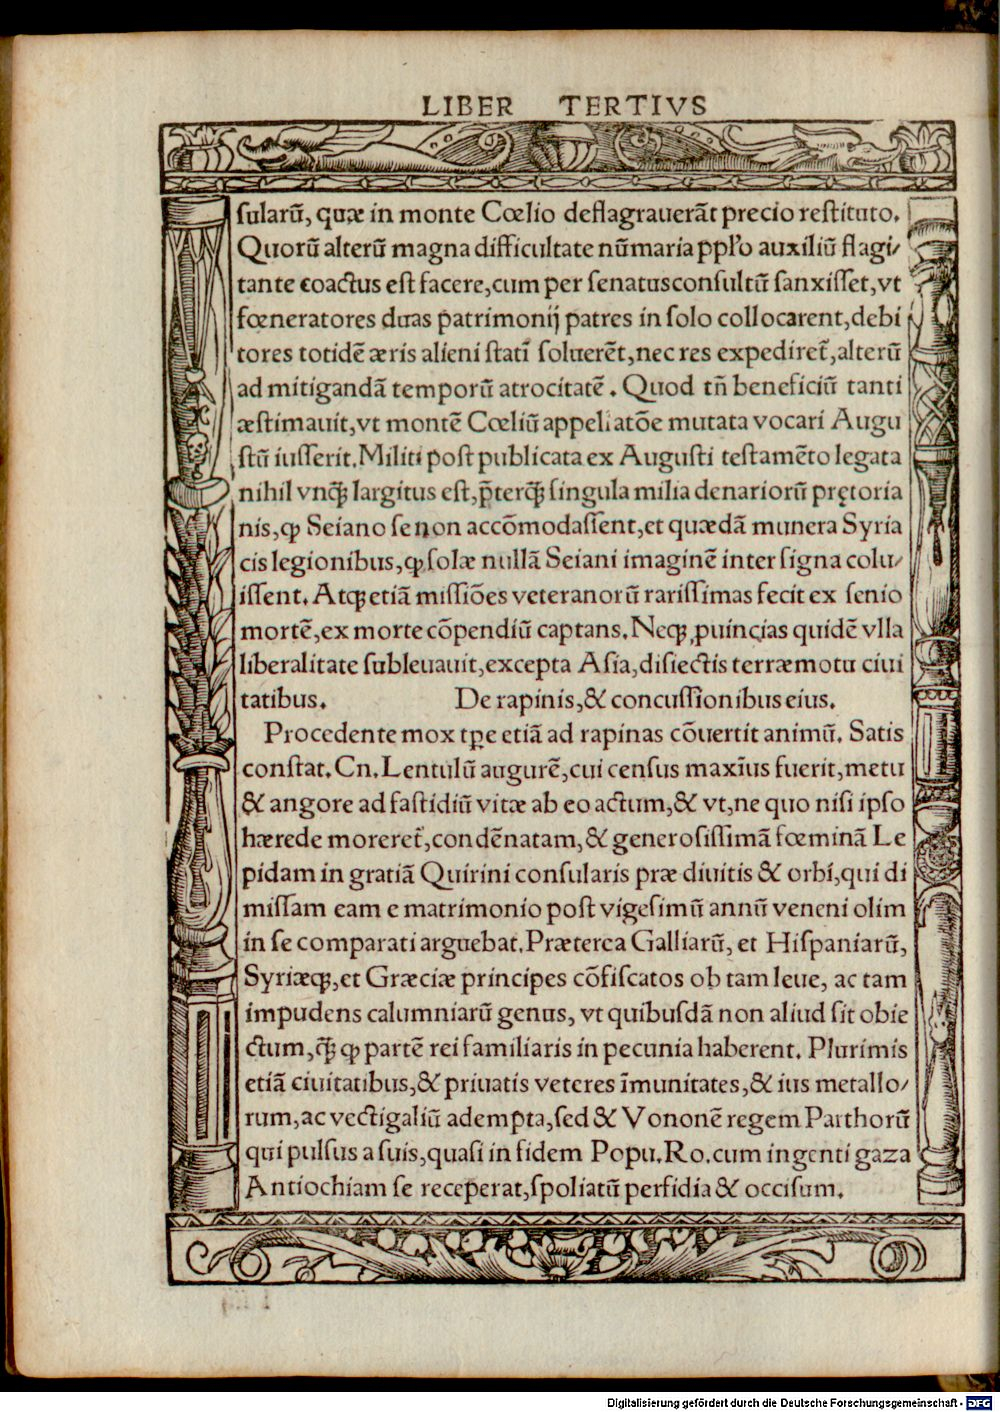 LIBER TERTIVS
ſularū, quæ in monte Cœlio deflagrauerāt precio reſtituto.
Quorū alterū magna difficultate nūmaria pp̄lo auxiliū flagi/
tante coactus eſt facere,cum per ſenatusconſultū ſanxiſſet,vt
fœneratores duas patrimonij patres in ſolo collocarent,debi
tores totidē æris alieni ſtatī ſoluerēt,nec res expediret̄,alterū
ad mitigandā temporū atrocitatē. Quod tn̄ beneficiū tanti
æſtimauit,vt montē Cœliū appellatōe mutata vocari Augu
ſtū iuſſerit.Militi poſt publicata ex Auguſti teſtamēto legata
nihil vnq̄ꝫ largitus eſt,p̄terq̄ꝫ ſingula milia denariorū prętoria
nis,ꝙ Seiano ſe non accōmodaſſent,et quædā munera Syria
cis legionibus,ꝙ ſolæ nullā Seiani imaginē inter ſigna colu/
iſſent. Atqꝫ etiā miſſiōes veteranorū rariſſimas fecit ex ſenio
mortē,ex morte cōpendiū captans.Neqꝫ ꝓuincias quidē vlla
liberalitate ſubleuauit,excepta Aſia,diſiectis terræmotu ciui
tatibus. De rapinis,& concuſſionibus eius.
Procedente mox tꝑe etiā ad rapinas cōuertit animū. Satis
conſtat.Cn.Lentulū augurē,cui cenſus maxīus fuerit,metu
& angore ad faſtidiū vitæ ab eo actum,& vt,ne quo niſi ipſo
hærede moreret̄,condēnatam,& generoſiſſimā fœminā Le
pidam in gratiā Quirini conſularis præ diuitis & orbi,qui di
miſſam eam e matrimonio poſt vigeſimū annū veneni olim
in ſe comparati arguebat.Præterea Galliarū, et Hiſpaniarū,
Syriæqꝫ,et Græciæ principes cōfiſcatos ob tam leue, ac tam
impudens calumniarū genus, vt quibuſdā non aliud ſit obie
ctum,q̄ꝫ ꝙ partē rei familiaris in pecunia haberent. Plurimis
etiā ciuitatibus,& priuatis veteres īmunitates,& ius metallo/
rum,ac vectigaliū adempta,ſed & Vononē regem Parthorū
qui pulſus a ſuis,quaſi in fidem Popu.Ro.cum ingenti gaza
Antiochiam ſe receperat,ſpoliatū perfidia & occiſum.
Digitalisierung gefördert durch die Deutsche Forschungsgemeinschaft - DFG